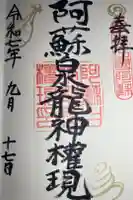 奉拝
阿蘇泉龍神權現
令和七年 九月 十七日